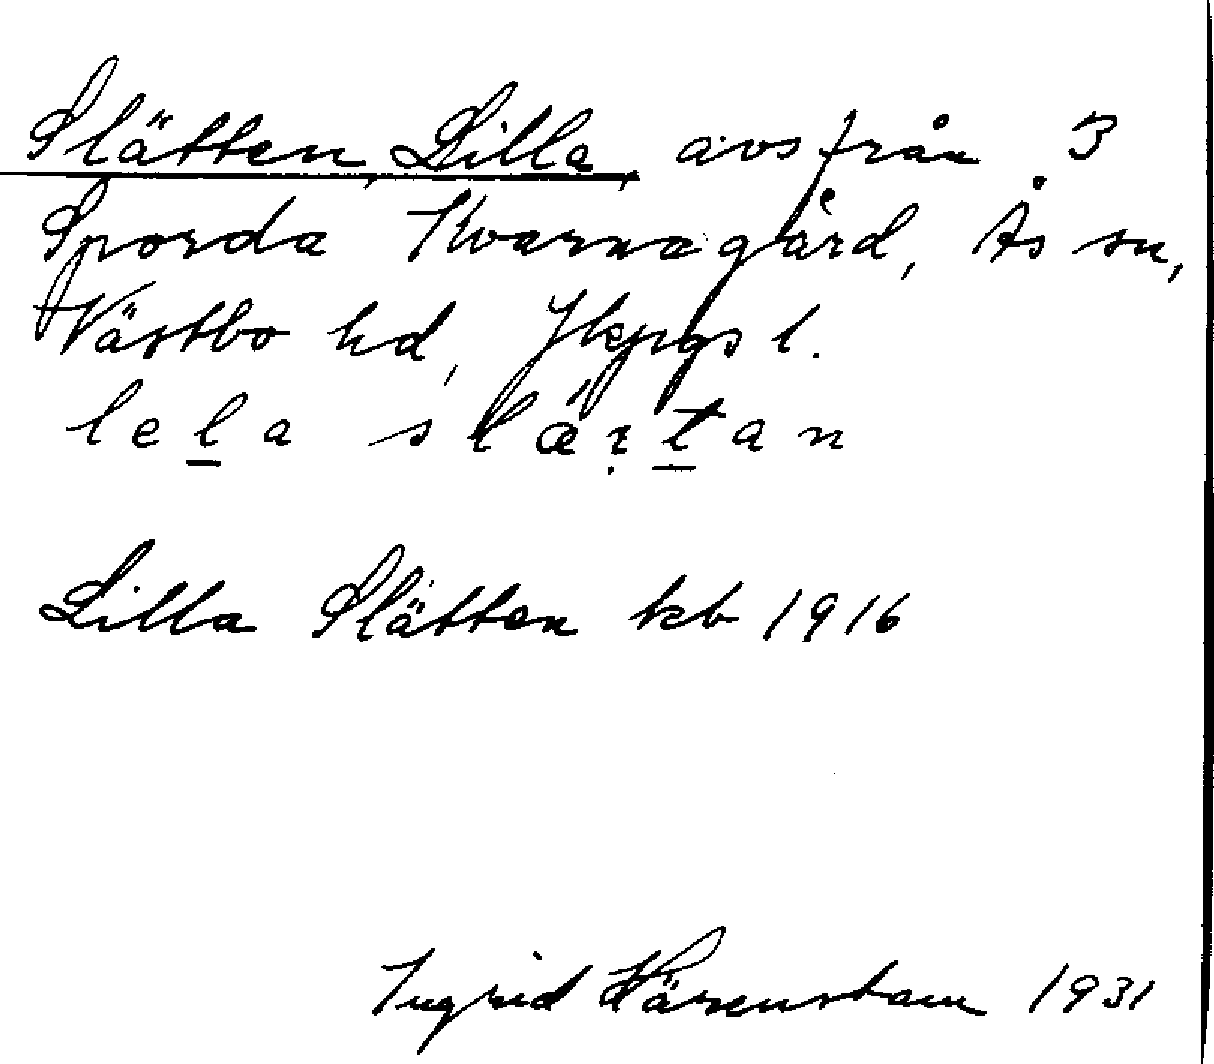 Slätten, Lilla, avs från 3
Sporda Kvarnagård, Ås sn,
Västbo hd, Jkpgs l.
lela slätan
Lilla Slätten kb 1916
Ingrid Härenstam 1931